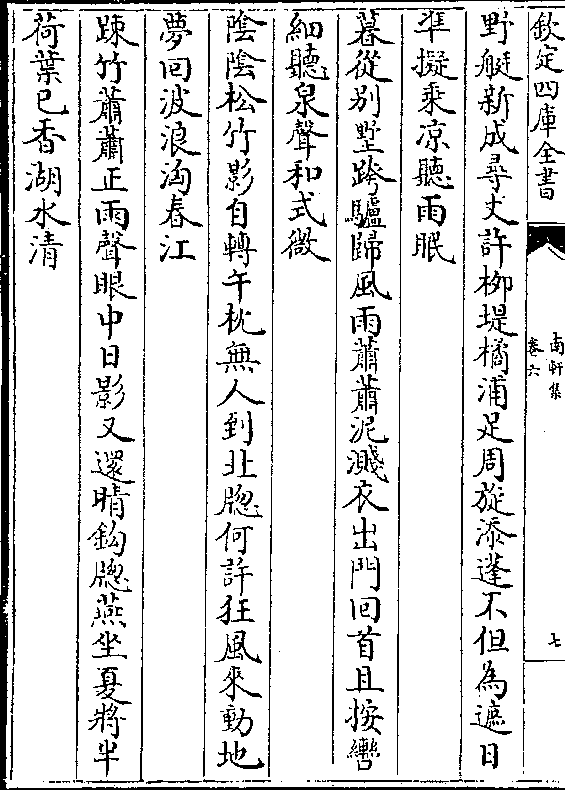 欽定四庫全書
南軒集
卷六
七
野艇新成尋丈許柳堤橘浦足周旋添蓬不但為遮日
凖擬乘凉聽雨眠
暮從别墅跨驢歸風雨蕭蕭泥濺衣出門回首且按轡
細聽泉聲和式微
陰陰松竹影自轉午枕無人到北牎何許狂風來動地
夢回波浪洶春江
踈竹蕭蕭正雨聲眼中日影又還晴鈎牎燕坐夏將半
荷葉已香湖水清